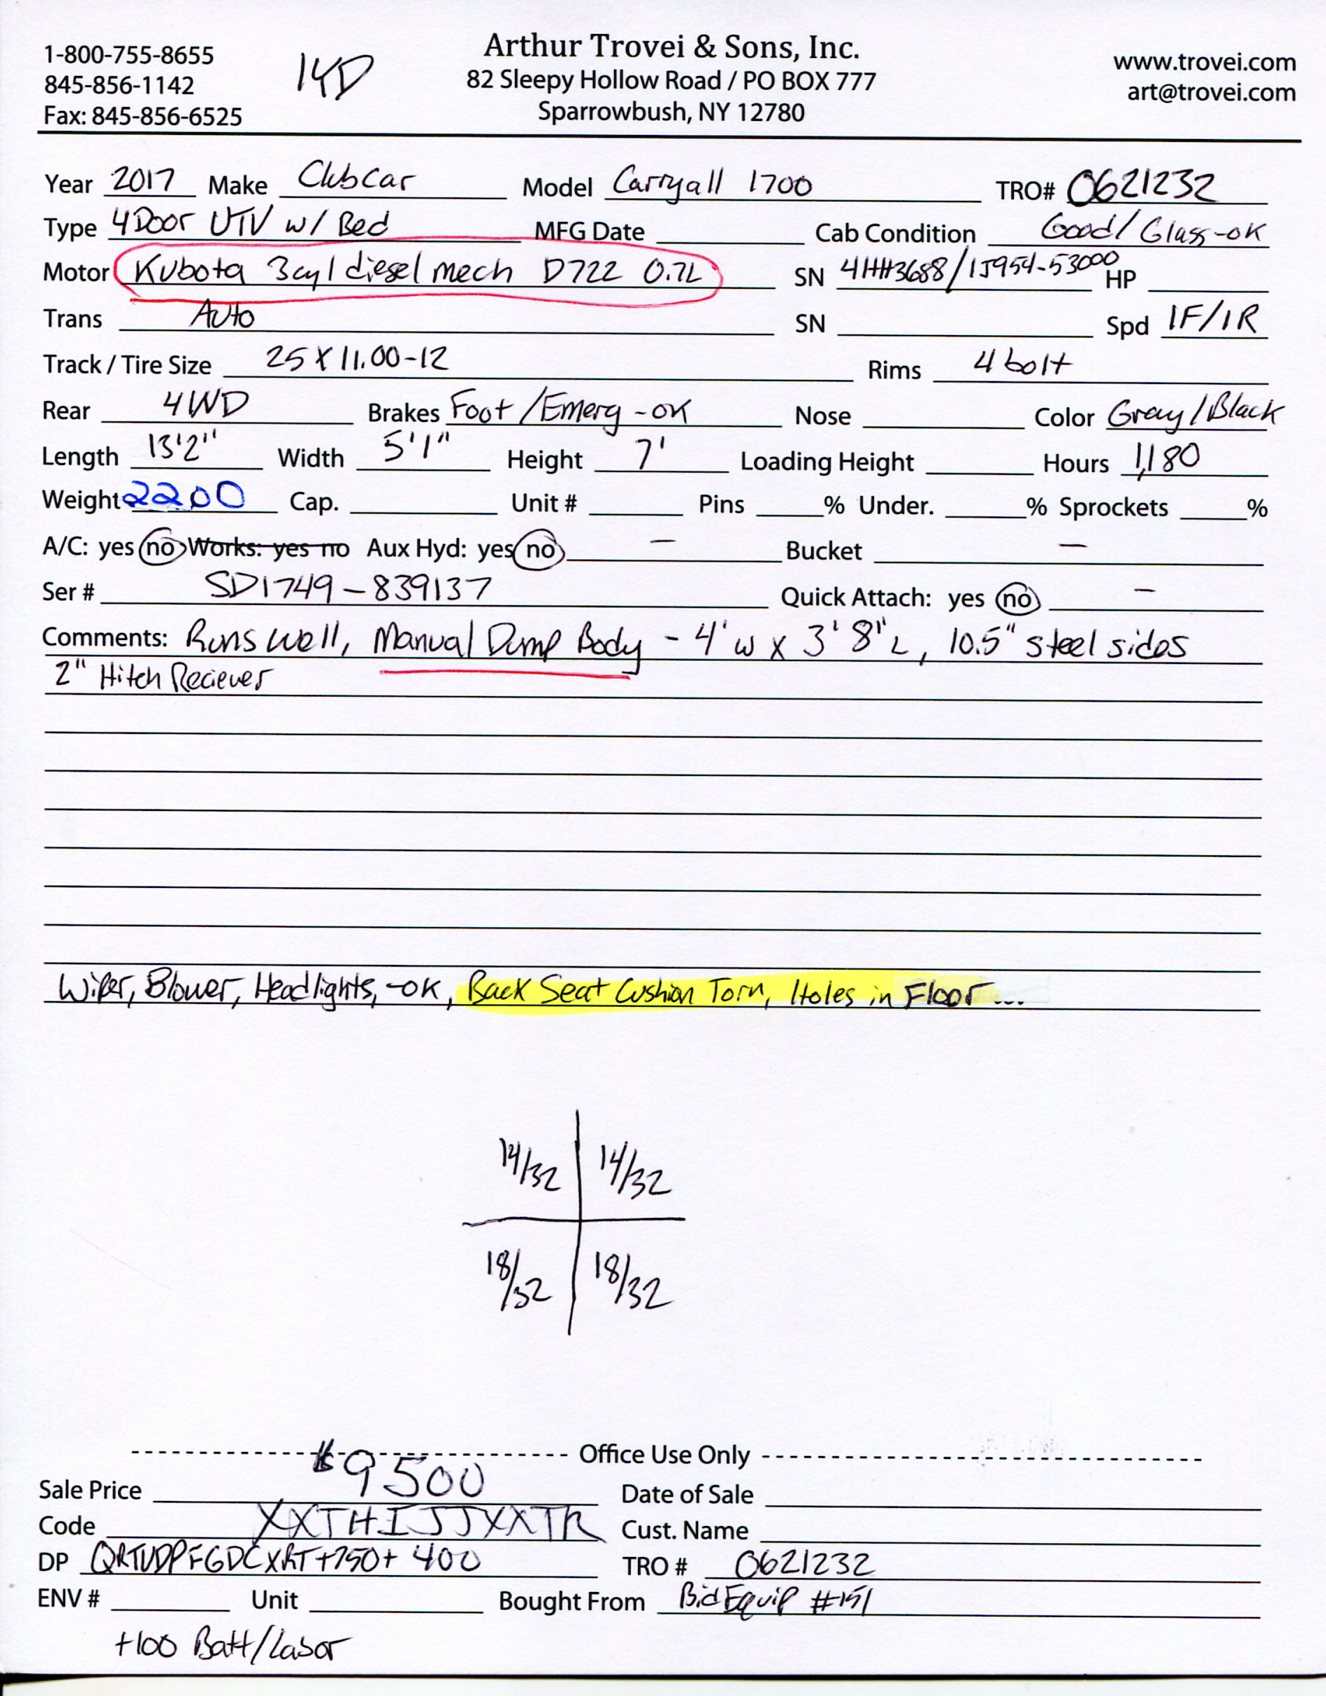 1-800-755-8655
845-856-1142
Fax: 845-856-6525
14D
Arthur Trovei & Sons, Inc.
82 Sleepy Hollow Road / PO BOX 777
Sparrowbush, NY 12780
www.trovei.com
art@trovei.com
Year 2017 Make ClubCar Model Carryall 1700 TRO# 0621232
Type 4Door UTV w/ Bed MFG Date Cab Condition Good/Glass-ok
Motor Kubota 3cyl diesel mech D722 0.7L SN 4HH3688/1J954-53000 HP
Trans Auto SN Spd 1F/1R
Track / Tire Size 25X11.00-12 Rims 4 bolt
Rear 4WD Brakes Foot/Emerg-OK Nose Color Gray/Black
Length 13'2" Width 5'1" Height 7' Loading Height Hours 1,180
Weight 2200 Cap. Unit # Pins % Under. % Sprockets %
A/C: yes no Works: yes no Aux Hyd: yes no — Bucket —
Ser # SD1749-839137 Quick Attach: yes no —
Comments: Runs well, Manual Dump Body - 4'w x 3'8"L, 10.5" steel sides
2" Hitch Reciever
Wiper, Blower, Headlights,-OK, Back Seat Cushion Torn, Holes in Floor...
14/32 14/32
18/32 18/32
Office Use Only
Sale Price $9500 Date of Sale
Code Cust. Name
DP +750+400 TRO # 0621232
ENV # Unit Bought From BidEquip #151
+100 Batt/Labor